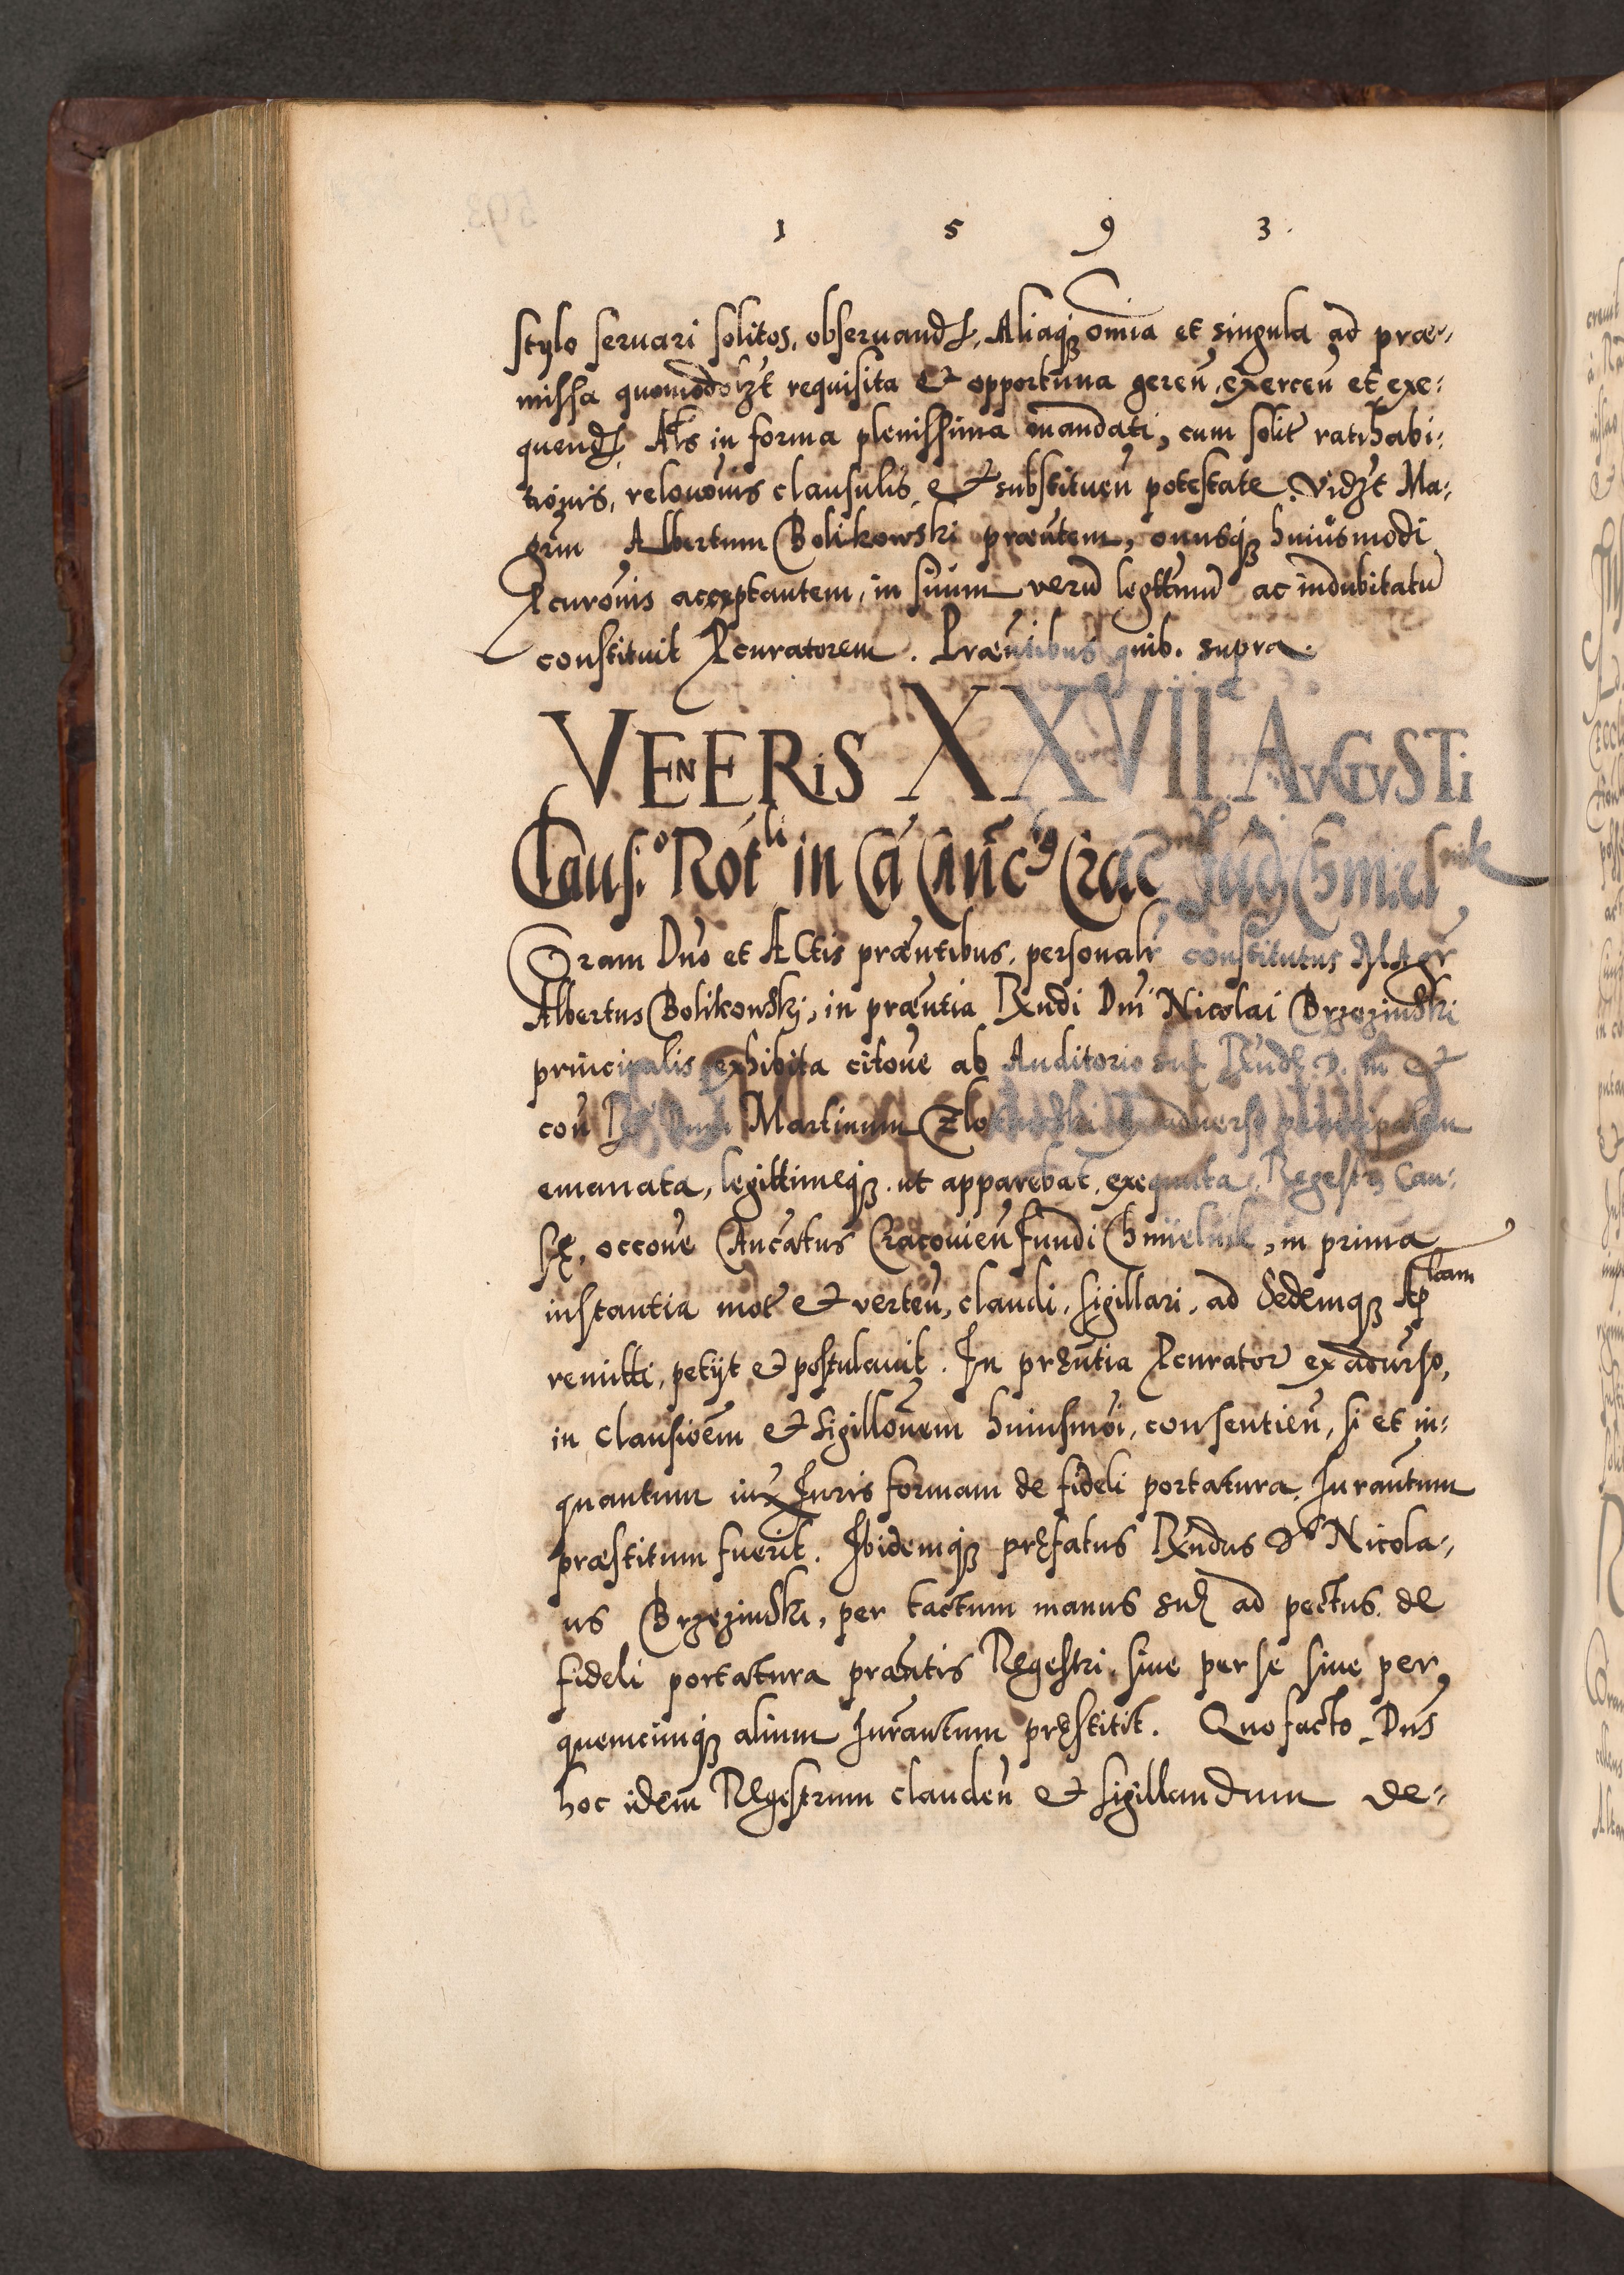 1 5 9 3.
stylo seruari solitos, obseruand. Aliaq; om̃ia et singula ad præ-
missa quomodolz̃t requisita et opportuna gereñ, exerceñ et exe-
quend. Als in forma plenissima mandati, cum solit ratihabi-
tiõnis, releuõnis clausulis, et substitueñ potestate. Vidz̃t Ma-
grm̃ Albertum Bolikowski præñtem, onusq; huiusmodi
Pcurõnis acceptantem, in suum verũ legittimũ ac indubitatũ
constituit Pcuratorem. Præñtibus quib. supra.
VENERIS XXVIIa AVGVSTI
Claus:o Rotli in Cã Cañc9 Crac Fũd Chmielnik
Coram Dño et Actis præñtibus, personalr constitutus Magr
Albertus Bolikowskj, in præñtia Rñdi Dñi Nicolai Brzezinski
principalis exhibita citõne ab Auditorio suæ Rñdæ D. in et
coñ Martinum ex aduerso principalem
emanata, legittimeq; ut apparebat, exequuta, Regestr Cau-
sæ, occõne Cañcatus Cracouieñ fundi Chmielnik, in prima
instantia mot et verteñ, claudi, sigillari, ad Sedemq; Aplcam
remitti, petijt et postulauit. In præñtia Pcurator ex aduerso,
in clausiõem et sigillõnem huiusmõi, consentieñ, si et in-
quantum iux Iuris formam de fideli portatura, Iurañtum
præstitum fuerit. Ibidemq; præfatus Rñdus Ds Nicola-
us Brzezinski, per tactum manus suæ ad pectus, de
fideli portatura præñtis Regestri, siue per se siue per
quemcunq; alium Iurañtum præstitit. Quo facto, Dñs
hoc idem Regestrum claudeñ et sigillandum de-